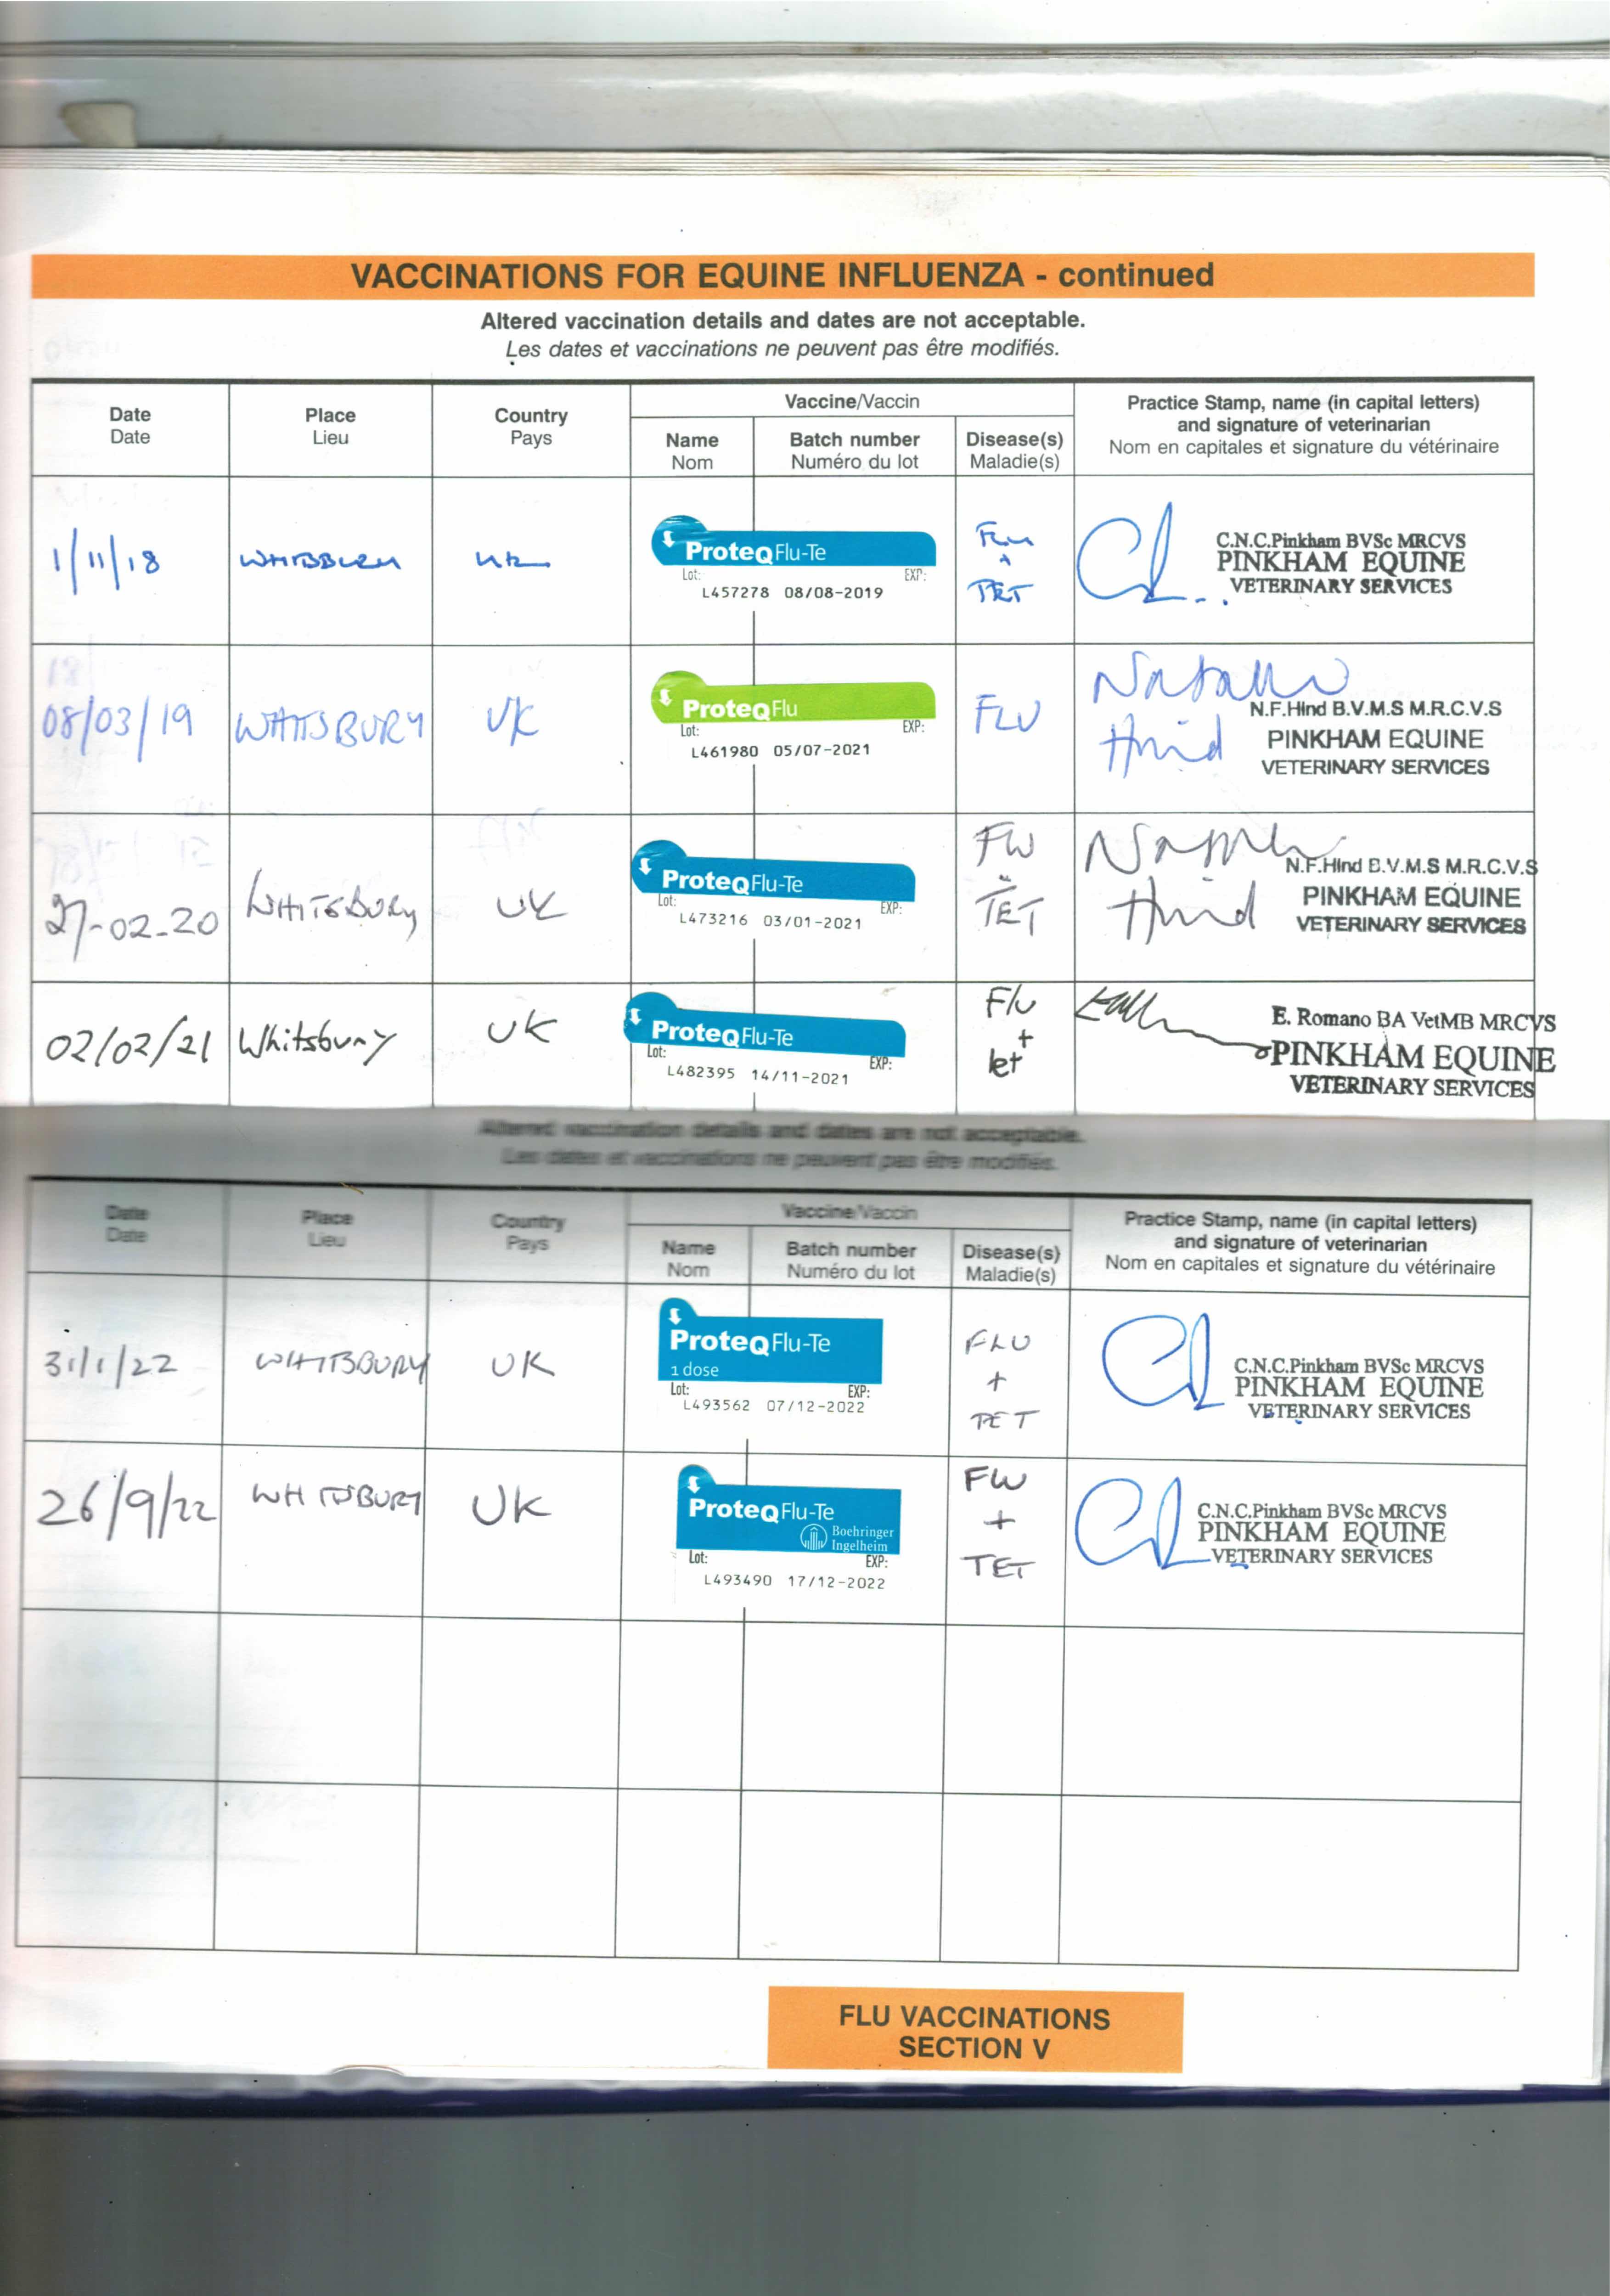 VACCINATIONS FOR EQUINE INFLUENZA - continued
Altered vaccination details and dates are not acceptable.
Les dates et vaccinations ne peuvent pas être modifiés.
Date
Date
Place
Lieu
Country
Pays
Vaccine/Vaccin
Name
Nom
Batch number
Numéro du lot
Disease(s)
Maladie(s)
Practice Stamp, name (in capital letters)
and signature of veterinarian
Nom en capitales et signature du vétérinaire
1/11/18
UK
ProteqFlu-Te
Lot: EXP:
L457278 08/08-2019
Flu
+
TET
C.N.C.Pinkham BVSc MRCVS
PINKHAM EQUINE
VETERINARY SERVICES
08/03/19
WHITSBURY
UK
ProteqFlu
Lot: EXP:
L461980 05/07-2021
FLU
Hind
N.F.Hind B.V.M.S M.R.C.V.S
PINKHAM EQUINE
VETERINARY SERVICES
27-02-20
WHITSBURY
UK
ProteqFlu-Te
Lot: EXP:
L473216 03/01-2021
FLU
TET
Hind
N.F.Hind B.V.M.S M.R.C.V.S
PINKHAM EQUINE
VETERINARY SERVICES
02/02/21
Whitsbury
UK
ProteqFlu-Te
Lot: EXP:
L482395 14/11-2021
Flu
+
tet
E. Romano BA VetMB MRCVS
PINKHAM EQUINE
VETERINARY SERVICES
Altered vaccination details and dates are not acceptable.
Les dates et vaccinations ne peuvent pas être modifiés.
Date
Date
Place
Lieu
Country
Pays
Vaccine/Vaccin
Name
Nom
Batch number
Numéro du lot
Disease(s)
Maladie(s)
Practice Stamp, name (in capital letters)
and signature of veterinarian
Nom en capitales et signature du vétérinaire
31/1/22
WHITSBURY
UK
ProteqFlu-Te
1 dose
Lot: EXP:
L493562 07/12-2022
FLU
+
TET
C.N.C.Pinkham BVSc MRCVS
PINKHAM EQUINE
VETERINARY SERVICES
26/9/22
WHITSBURY
UK
ProteqFlu-Te
Boehringer
Ingelheim
Lot: EXP:
L493490 17/12-2022
FLU
+
TET
C.N.C.Pinkham BVSc MRCVS
PINKHAM EQUINE
VETERINARY SERVICES
FLU VACCINATIONS
SECTION V